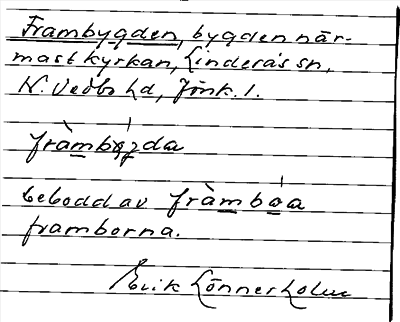 Frambygden, bygden när-
mast kyrkan, Linderås sn,
N. Vedbo hd, Jönk. l.
fràmbýgda
bebodd av fràmboa
framborna.
Erik Lönnerholm